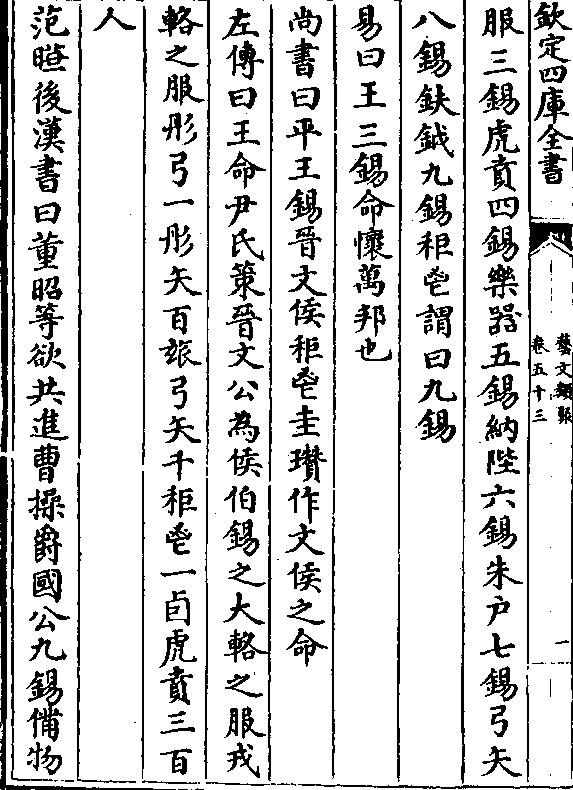 欽定四庫全書
藝文類聚
卷五十三
一
服三錫虎賁四錫樂器五錫納陛六錫朱户七錫弓矢
八錫鈇鉞九錫秬鬯謂曰九錫
易曰王三錫命懷萬邦也
尚書曰平王錫晉文侯秬鬯圭瓚作文侯之命
左傳曰王命尹氏策晉文公為侯伯錫之大輅之服戎
輅之服彤弓一彤矢百玈弓矢千秬鬯一卣虎賁三百
人
范曄後漢書曰董昭等欲共進曹操爵國公九錫備物